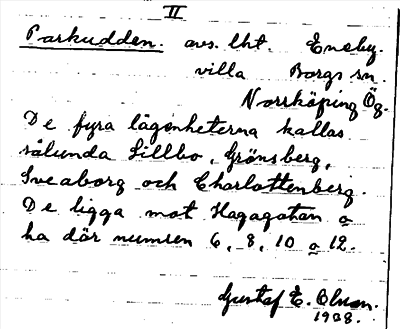 II
Parkudden. avs. lht. Eneby.
villa Borgs sn.
Norrköping Ög.
De fyra lägenheterna kallas
sålunda Lillbo, Grönsberg,
Sveaborg och Charlottenberg.
De ligga mot Hagagatan o
ha där numren 6, 8, 10 o 12.
Gustaf E. Olsson.
1938.